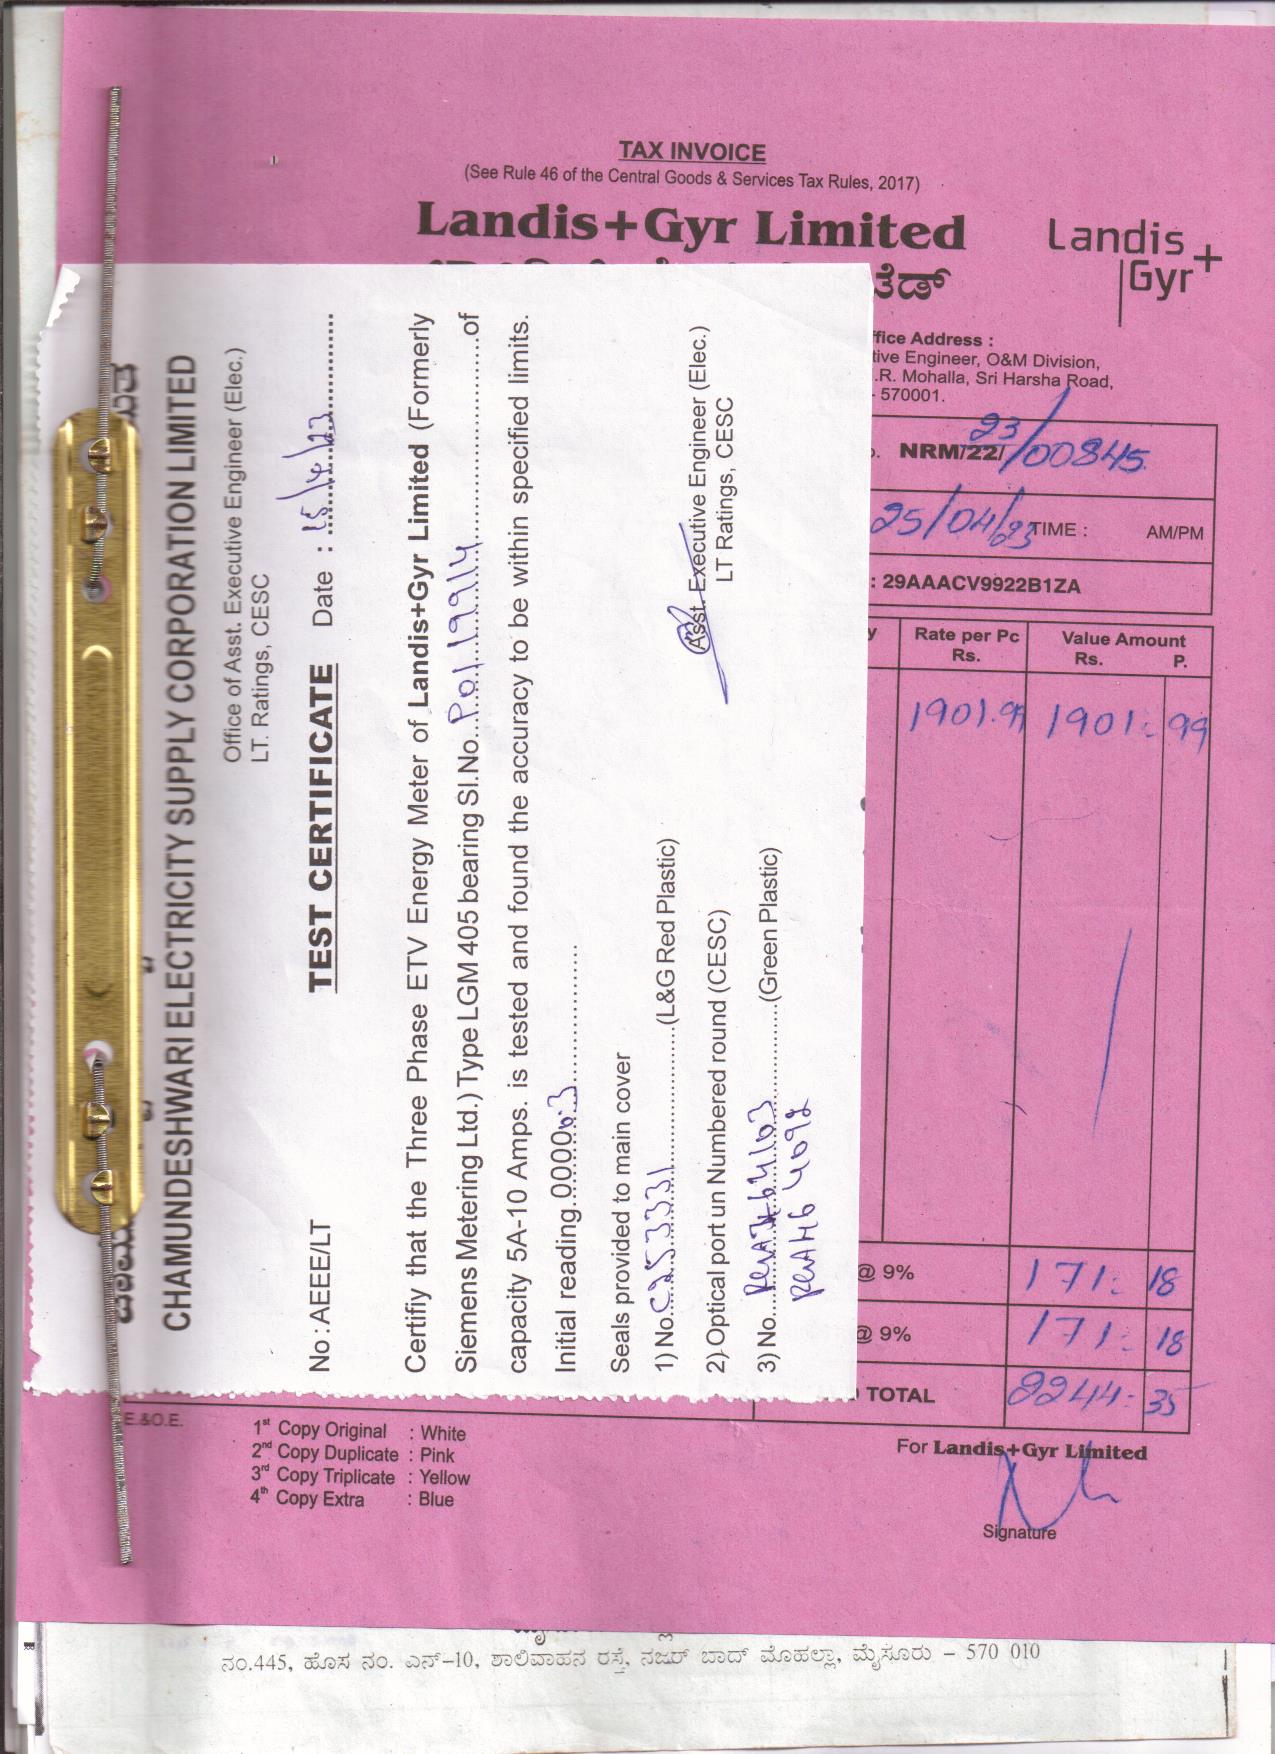 TAX INVOICE
(See Rule 46 of the Central Goods & Services Tax Rules, 2017)
Landis+Gyr Limited
Landis+
Gyr
ffice Address :
tive Engineer, O&M Division,
.R. Mohalla, Sri Harsha Road,
- 570001.
NRM/22/ 23/00845
25/04/23 TIME : AM/PM
: 29AAACV9922B1ZA
y Rate per Pc Rs. Value Amount Rs. P.
1901.99 1901: 99
@ 9% 171: 18
@ 9% 171: 18
TOTAL 2244: 35
E.&O.E.
1st Copy Original : White
2nd Copy Duplicate : Pink
3rd Copy Triplicate : Yellow
4th Copy Extra : Blue
For Landis+Gyr Limited
Signature
CHAMUNDESHWARI ELECTRICITY SUPPLY CORPORATION LIMITED
Office of Asst. Executive Engineer (Elec.)
LT. Ratings, CESC
No : AEEE/LT TEST CERTIFICATE Date : 15/4/23
Certifiy that the Three Phase ETV Energy Meter of Landis+Gyr Limited (Formerly
Siemens Metering Ltd.) Type LGM 405 bearing Sl.No. P0119914 of
capacity 5A-10 Amps. is tested and found the accuracy to be within specified limits.
Initial reading 00000.3
Seals provided to main cover
1) No. C253331 (L&G Red Plastic)
2) Optical port un Numbered round (CESC)
3) No. (Green Plastic)
Asst. Executive Engineer (Elec.)
LT Ratings, CESC
ನಂ.445, ಹೊಸ ನಂ. ಎನ್-10, ಶಾಲಿವಾಹನ ರಸ್ತೆ, ನಜರ್ ಬಾದ್ ಮೊಹಲ್ಲಾ, ಮೈಸೂರು - 570 010